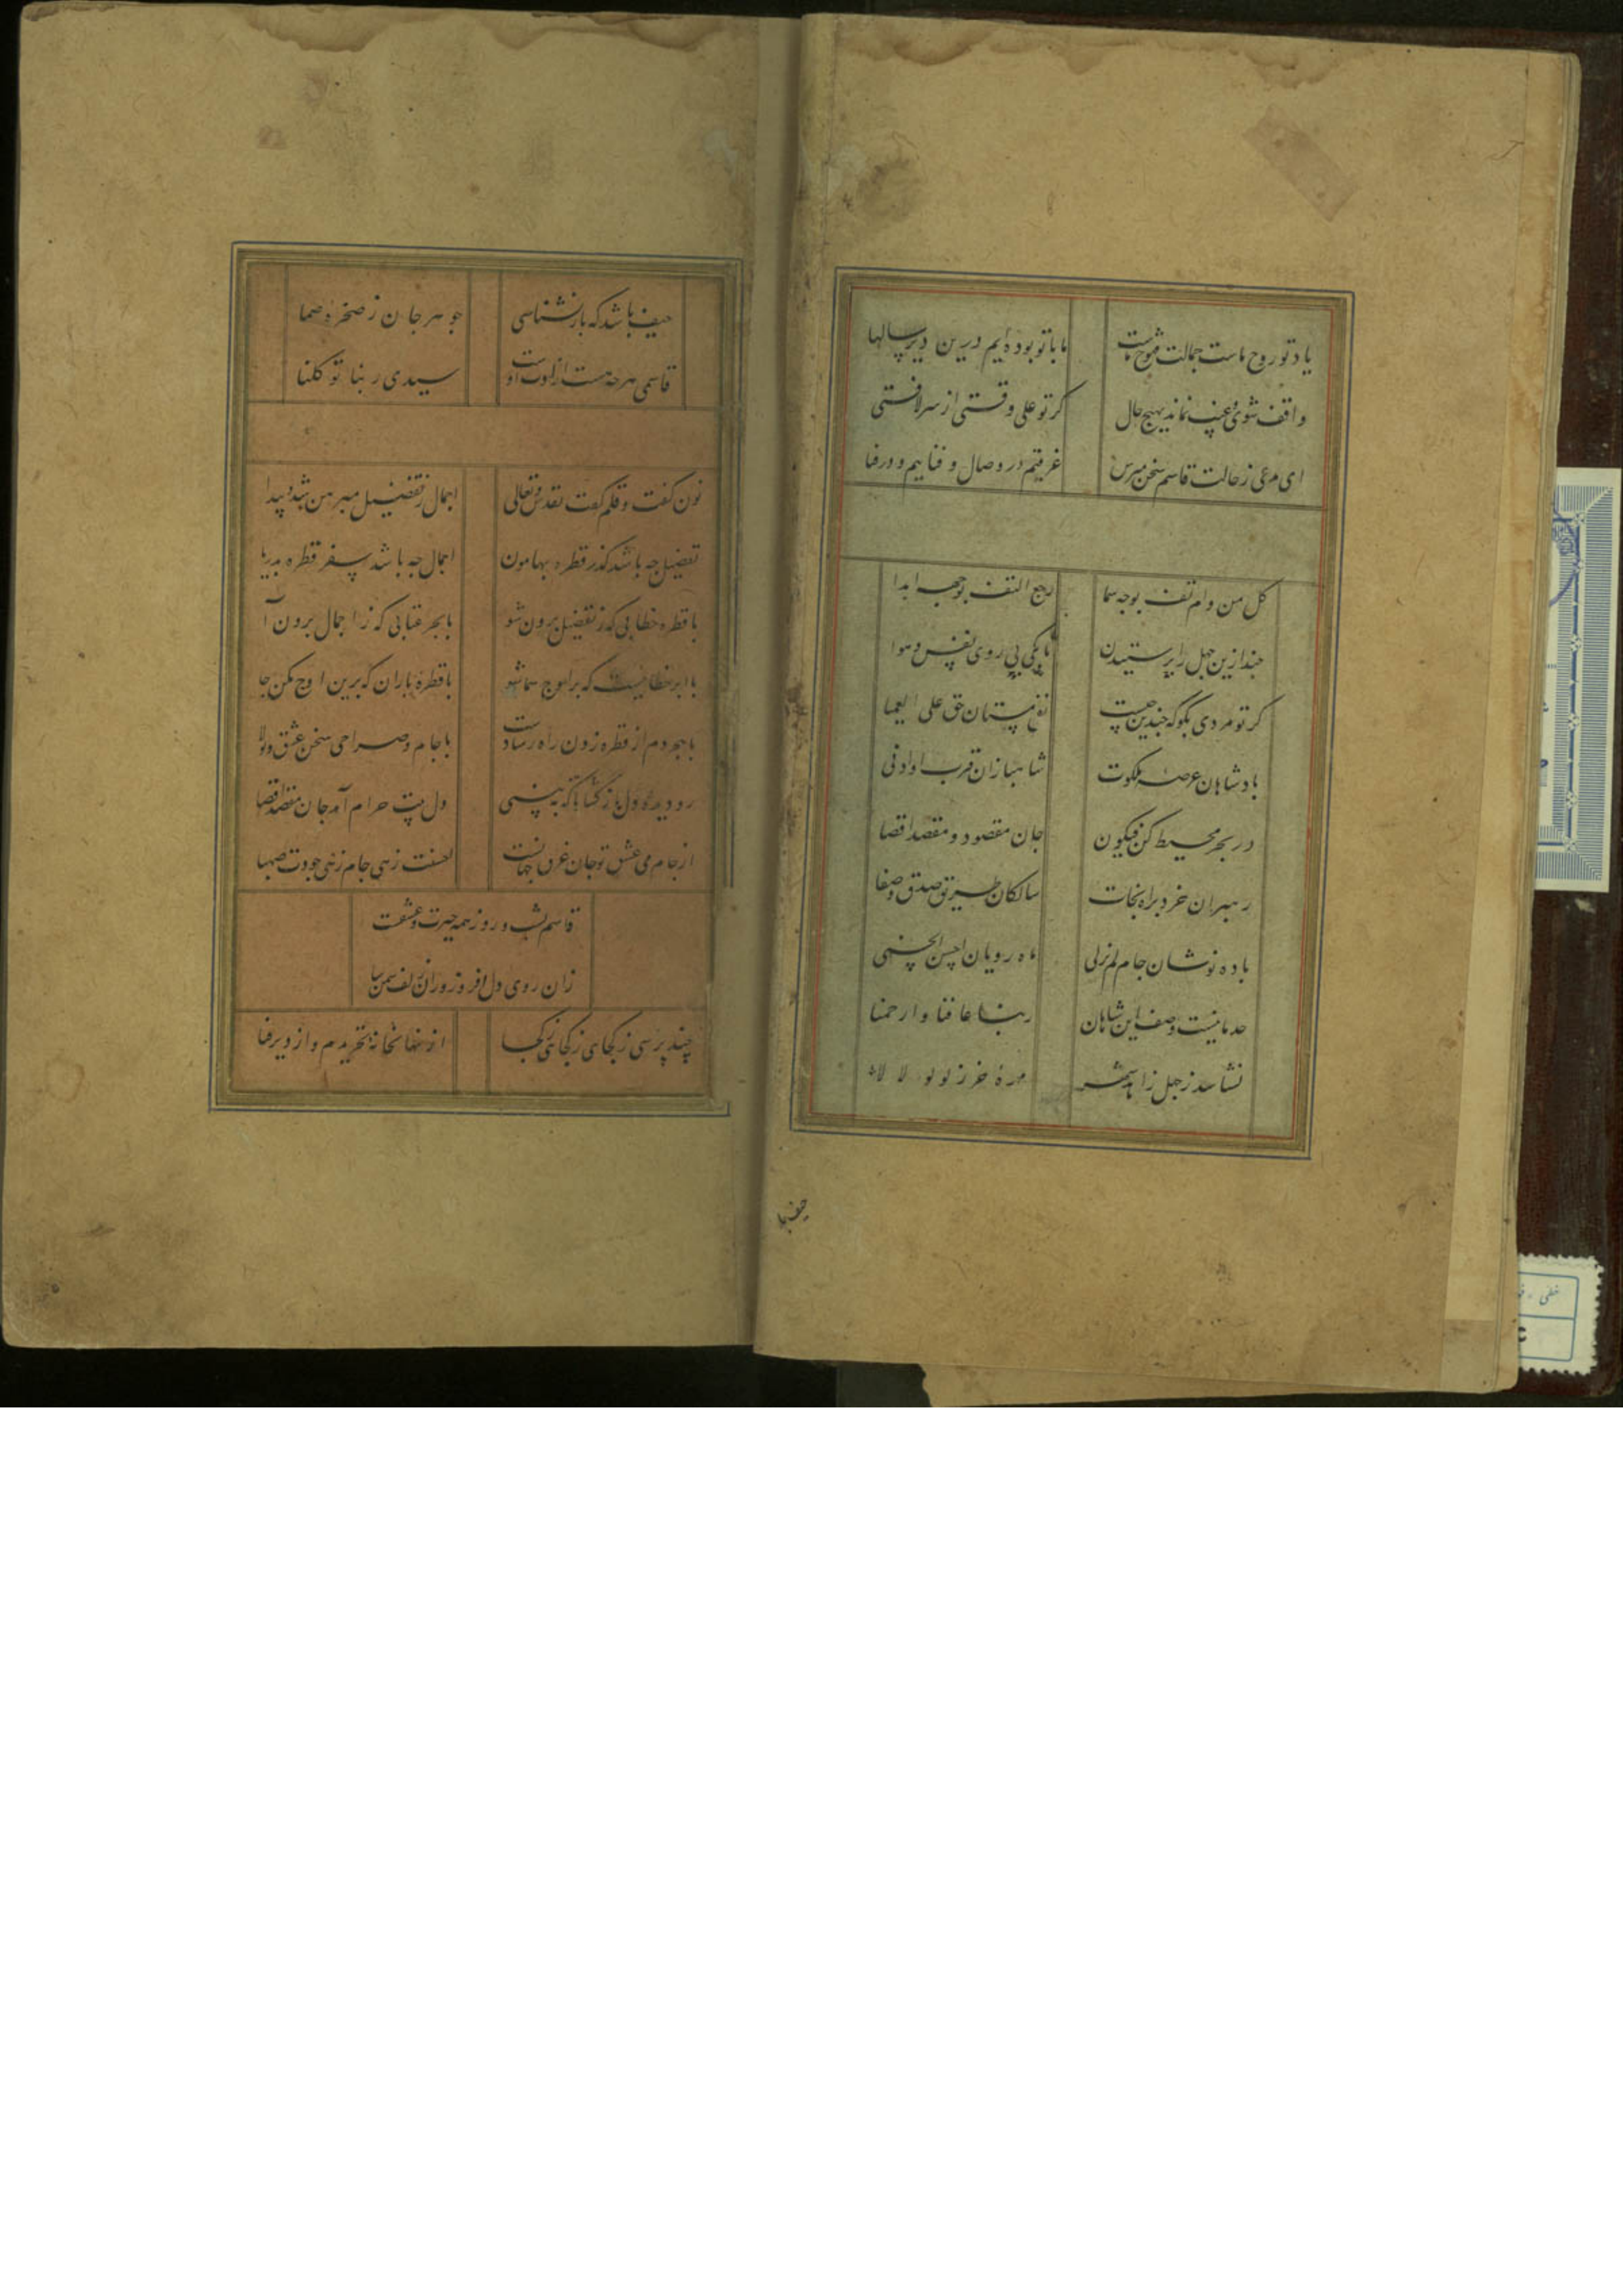 یاد تو روح ماست جمالت فتوح ماست ما با تو بوده‌ایم درین دیر سالها
واقف شوی و عیب نماند بهیچ حال کر تو علی وقتی از سر لافتی
ای مدعی ز حالت قاسم سخن مپرس غرقیم در وصال و فناییم و در فنا
کل من دام تقف بوجه سما رجع التقف بوجهه ابدا
چند ازین جهل را پرستیدن تا بکی پی روی نفس و هوا
کر تو مردی بکو که چندین چیست نفع مستان حق علی العمیا
بادشاهان عرصه ملکوت شاهبازان قرب او ادنی
در بحر محیط کن فیکون جان مقصود و مقصد اقصا
رهبران خرد براه نجات سالکان طریق صدق و صفا
باده نوشان جام لم یزلی ماه رویان احسن الحسنی
حد ما نیست وصف این شاهان ربنا عافنا و ارحمنا
نشاسد ز جهل زاهد شهر مهرهٔ خر ز لولو لالا
حیف با
حیف باشد که باز نشناسی جوهر جان ز صخرهٔ صما
قاسمی هرچه هست از اوست سیدی ربنا توکلنا
نون کفت و قلم کفت تقدس و تعالی اجمال ز تفضیل مبرهن شد و پیدا
تفضیل چه باشد کذر قطره بهامون اجمال چه باشد سفر قطره بدریا
با قطره خطابی که ز تفضیل برون شو با بحر عتابی که ز اجمال برون آ
با ابر خطابیست که بر اوج سما شو با قطرهٔ باران که برین اوج مکن جا
با بحر دم از قطره زدن راه رشادست با جام و صراحی سخن عشق و تولا
رو دیدهٔ دل باز کشا تا که ببینی دل بیت حرام آمد جان مقصد اقصا
از جام می عشق تو جان غرق جهانست احسنت زهی جام زهی جودت صهبا
قاسم شب و روز همه حیرت و عشقت
زان روی دل افروز وزان زلف سمن سا
چند پرسی ز کجایی ز کجایی ز کجا از نهانخانه تجریدم و از دیر فنا